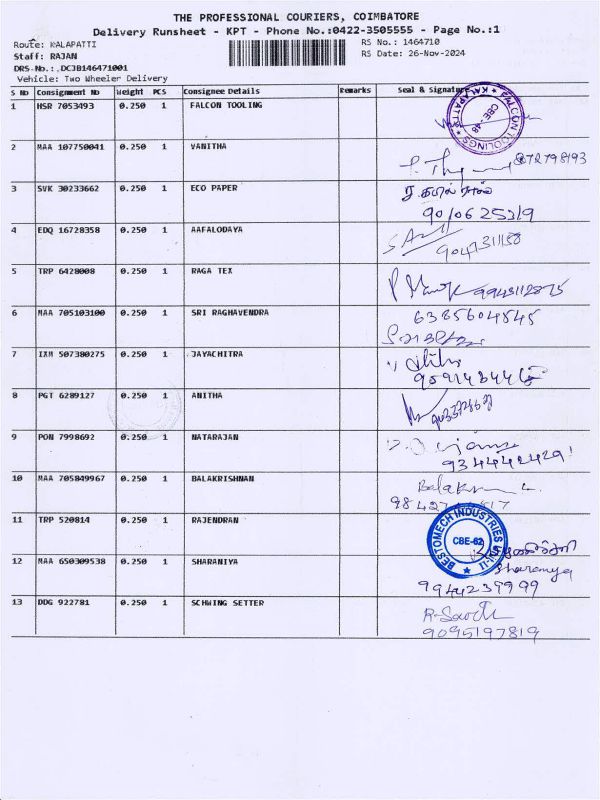 THE PROFESSIONAL COURIERS, COIMBATORE
Delivery Runsheet - KPT - Phone No.:0422-3505555 - Page No.:1
Route: KALAPATTI
RS No.: 1464710
Staff: RAJAN
RS Date: 26-Nov-2024
DRS-No.: DCJB146471001
Vehicle: Two Wheeler Delivery
S No Consignment No Weight PCS Consignee Details Remarks Seal & signature
1 HSR 7053493 0.250 1 FALCON TOOLING
FALCON TOOLINGS KALAPATTI CBE-48
2 MAA 107750041 0.250 1 VANITHA
3 SVK 30233662 0.250 1 ECO PAPER
4 EDQ 16728358 0.250 1 AAFALODAYA
5 TRP 6428008 0.250 1 RAGA TEX
9943112875
6 MAA 705103100 0.250 1 SRI RAGHAVENDRA
6385604545
7 IXM 507380275 0.250 1 JAYACHITRA
8 PGT 6289127 0.250 1 ANITHA
9 PON 7998692 0.250 1 NATARAJAN
10 MAA 705849967 0.250 1 BALAKRISHNAN
11 TRP 520814 0.250 1 RAJENDRAN
BESTOMECH INDUSTRIES UNI-II CBE-62
12 MAA 650309538 0.250 1 SHARANIYA
Sharanya
9944239999
13 DDG 922781 0.250 1 SCHWING SETTER
9095197819